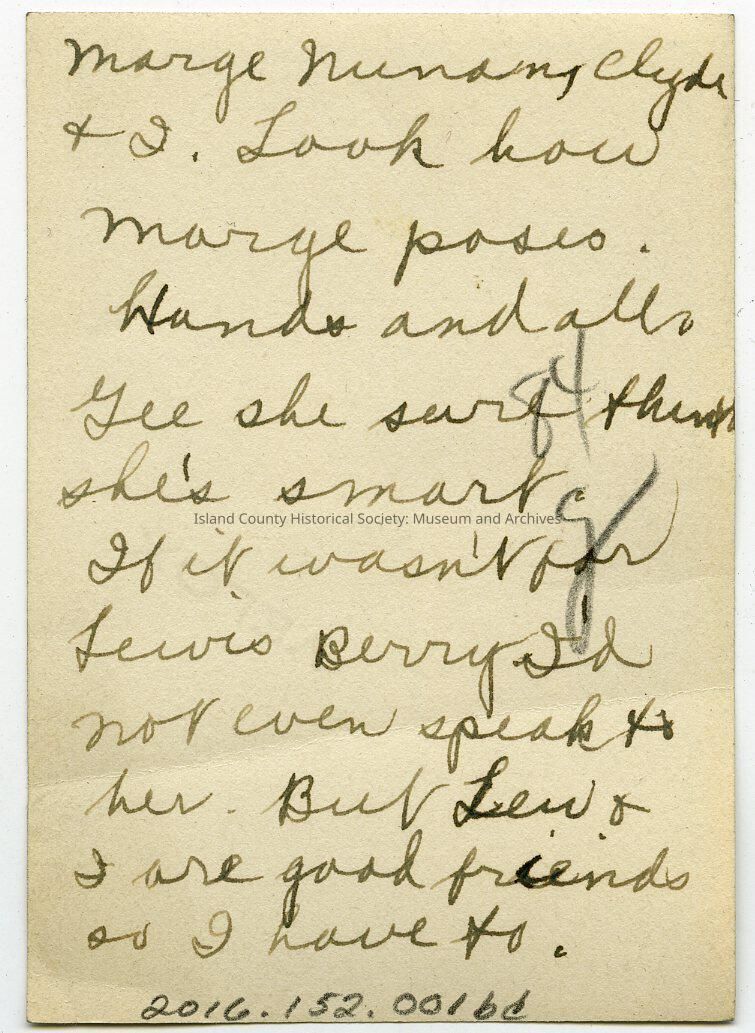 Marge Nunan, Clyde
& I. Look how
Marge poses.
Hands and all.
Gee she sure think
she's smart.
Island County Historical Society: Museum and Archives
If it wasn't for
Lewis Berry I'd
not even speak to
her. But Lew &
I are good friends
so I have to.
2016.152.001bd